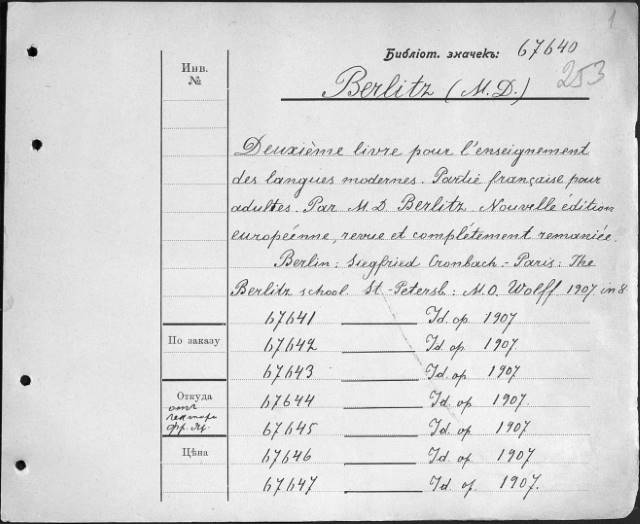 1
Библіот. значекъ: 67640
253
Инв.
№
Berlitz (M. D.)
Deuxième livre pour l'enseignement
des langues modernes. Partie française pour
adultes. Par M. D. Berlitz. Nouvelle édition
européenne, revue et complétement remaniée.
Berlin: Siegfried Cronbach. - Paris: The
Berlitz school. St.-Petersb.: M. O. Wolff 1907 in 8
67641 Id. op 1907
По заказу
67642 Id. op 1907
67643 Id. op 1907
Откуда
отъ
лектора
фр. яз.
67644 Id. op 1907
67645 Id. op 1907
Цѣна
67646 Id. op 1907
67647 Id. op 1907.